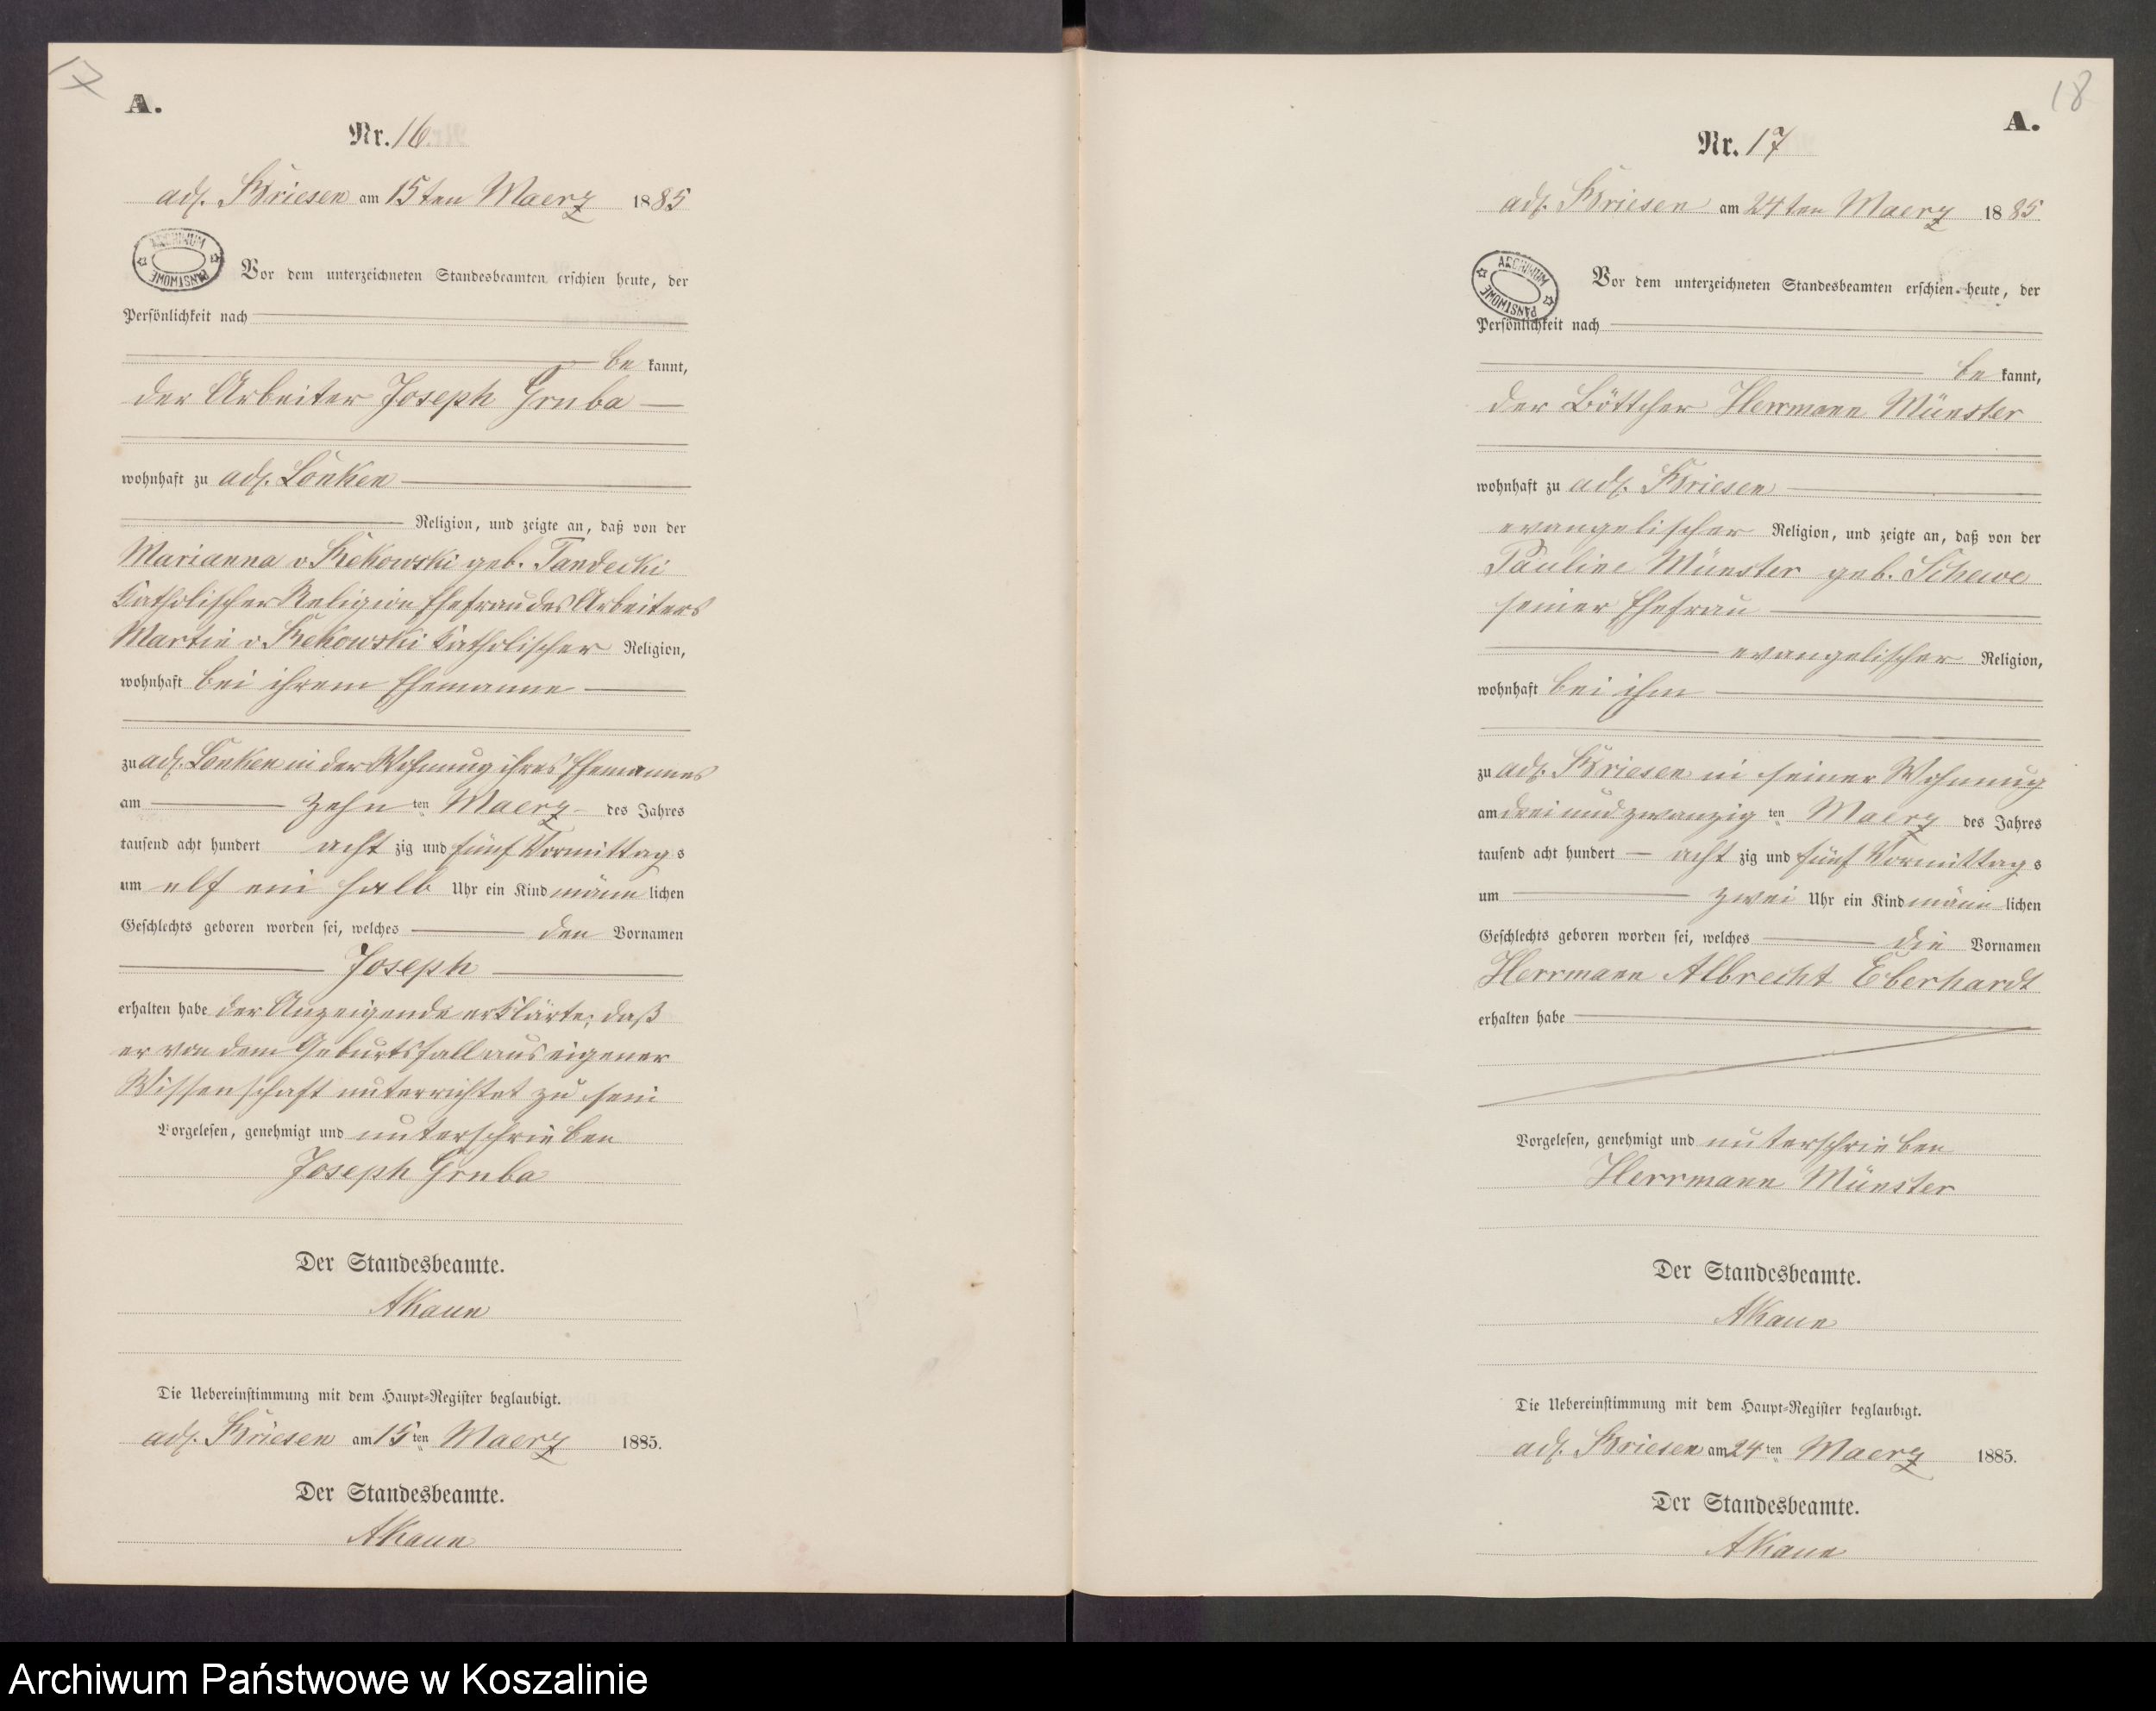 17
A.
Nr. 16.
adl. Briesen am 15ten Maerz 1885
ARCHIWUM PAŃSTWOWE
Vor dem unterzeichneten Standesbeamten erschien heute, der
Persönlichkeit nach
be kannt,
der Arbeiter Joseph Gruba
wohnhaft zu adl. Lonken
Religion, und zeigte an, daß von der
Marianna v. Kekowski geb. Tandecki
katholischer Religion Ehefrau des Arbeiters
Martin v. Kekowski katholischer Religion,
wohnhaft bei ihrem Ehemanne
zu adl. Lonken in der Wohnung ihres Ehemannes
am zehn ten Maerz des Jahres
tausend acht hundert acht zig und fünf Vormittag s
um elf ein halb Uhr ein Kind männ lichen
Geschlechts geboren worden sei, welches den Vornamen
Joseph
erhalten habe der Anzeigende erklärte, daß
er von dem Geburtsfall aus eigener
Wissenschaft unterrichtet zu sein
Vorgelesen, genehmigt und unterschrieben
Joseph Gruba
Der Standesbeamte.
AKaun
Die Uebereinstimmung mit dem Haupt-Register beglaubigt.
adl. Briesen am 15 ten Maerz 1885.
Der Standesbeamte.
AKaun
18
A.
Nr. 17
adl. Briesen am 24ten Maerz 1885
ARCHIWUM PAŃSTWOWE
Vor dem unterzeichneten Standesbeamten erschien heute, der
Persönlichkeit nach
be kannt,
der Böttcher Herrmann Münster
wohnhaft zu adl. Briesen
evangelischer Religion, und zeigte an, daß von der
Pauline Münster geb. Schewe
seiner Ehefrau
evangelischer Religion,
wohnhaft bei ihm
zu adl. Briesen in seiner Wohnung
am drei und zwanzig ten Maerz des Jahres
tausend acht hundert acht zig und fünf Vormittag s
um zwei Uhr ein Kind männ lichen
Geschlechts geboren worden sei, welches die Vornamen
Herrmann Albrecht Eberhardt
erhalten habe
Vorgelesen, genehmigt und unterschrieben
Herrmann Münster
Der Standesbeamte.
AKaun
Die Uebereinstimmung mit dem Haupt-Register beglaubigt.
adl. Briesen am 24 ten Maerz 1885.
Der Standesbeamte.
AKaun
Archiwum Państwowe w Koszalinie